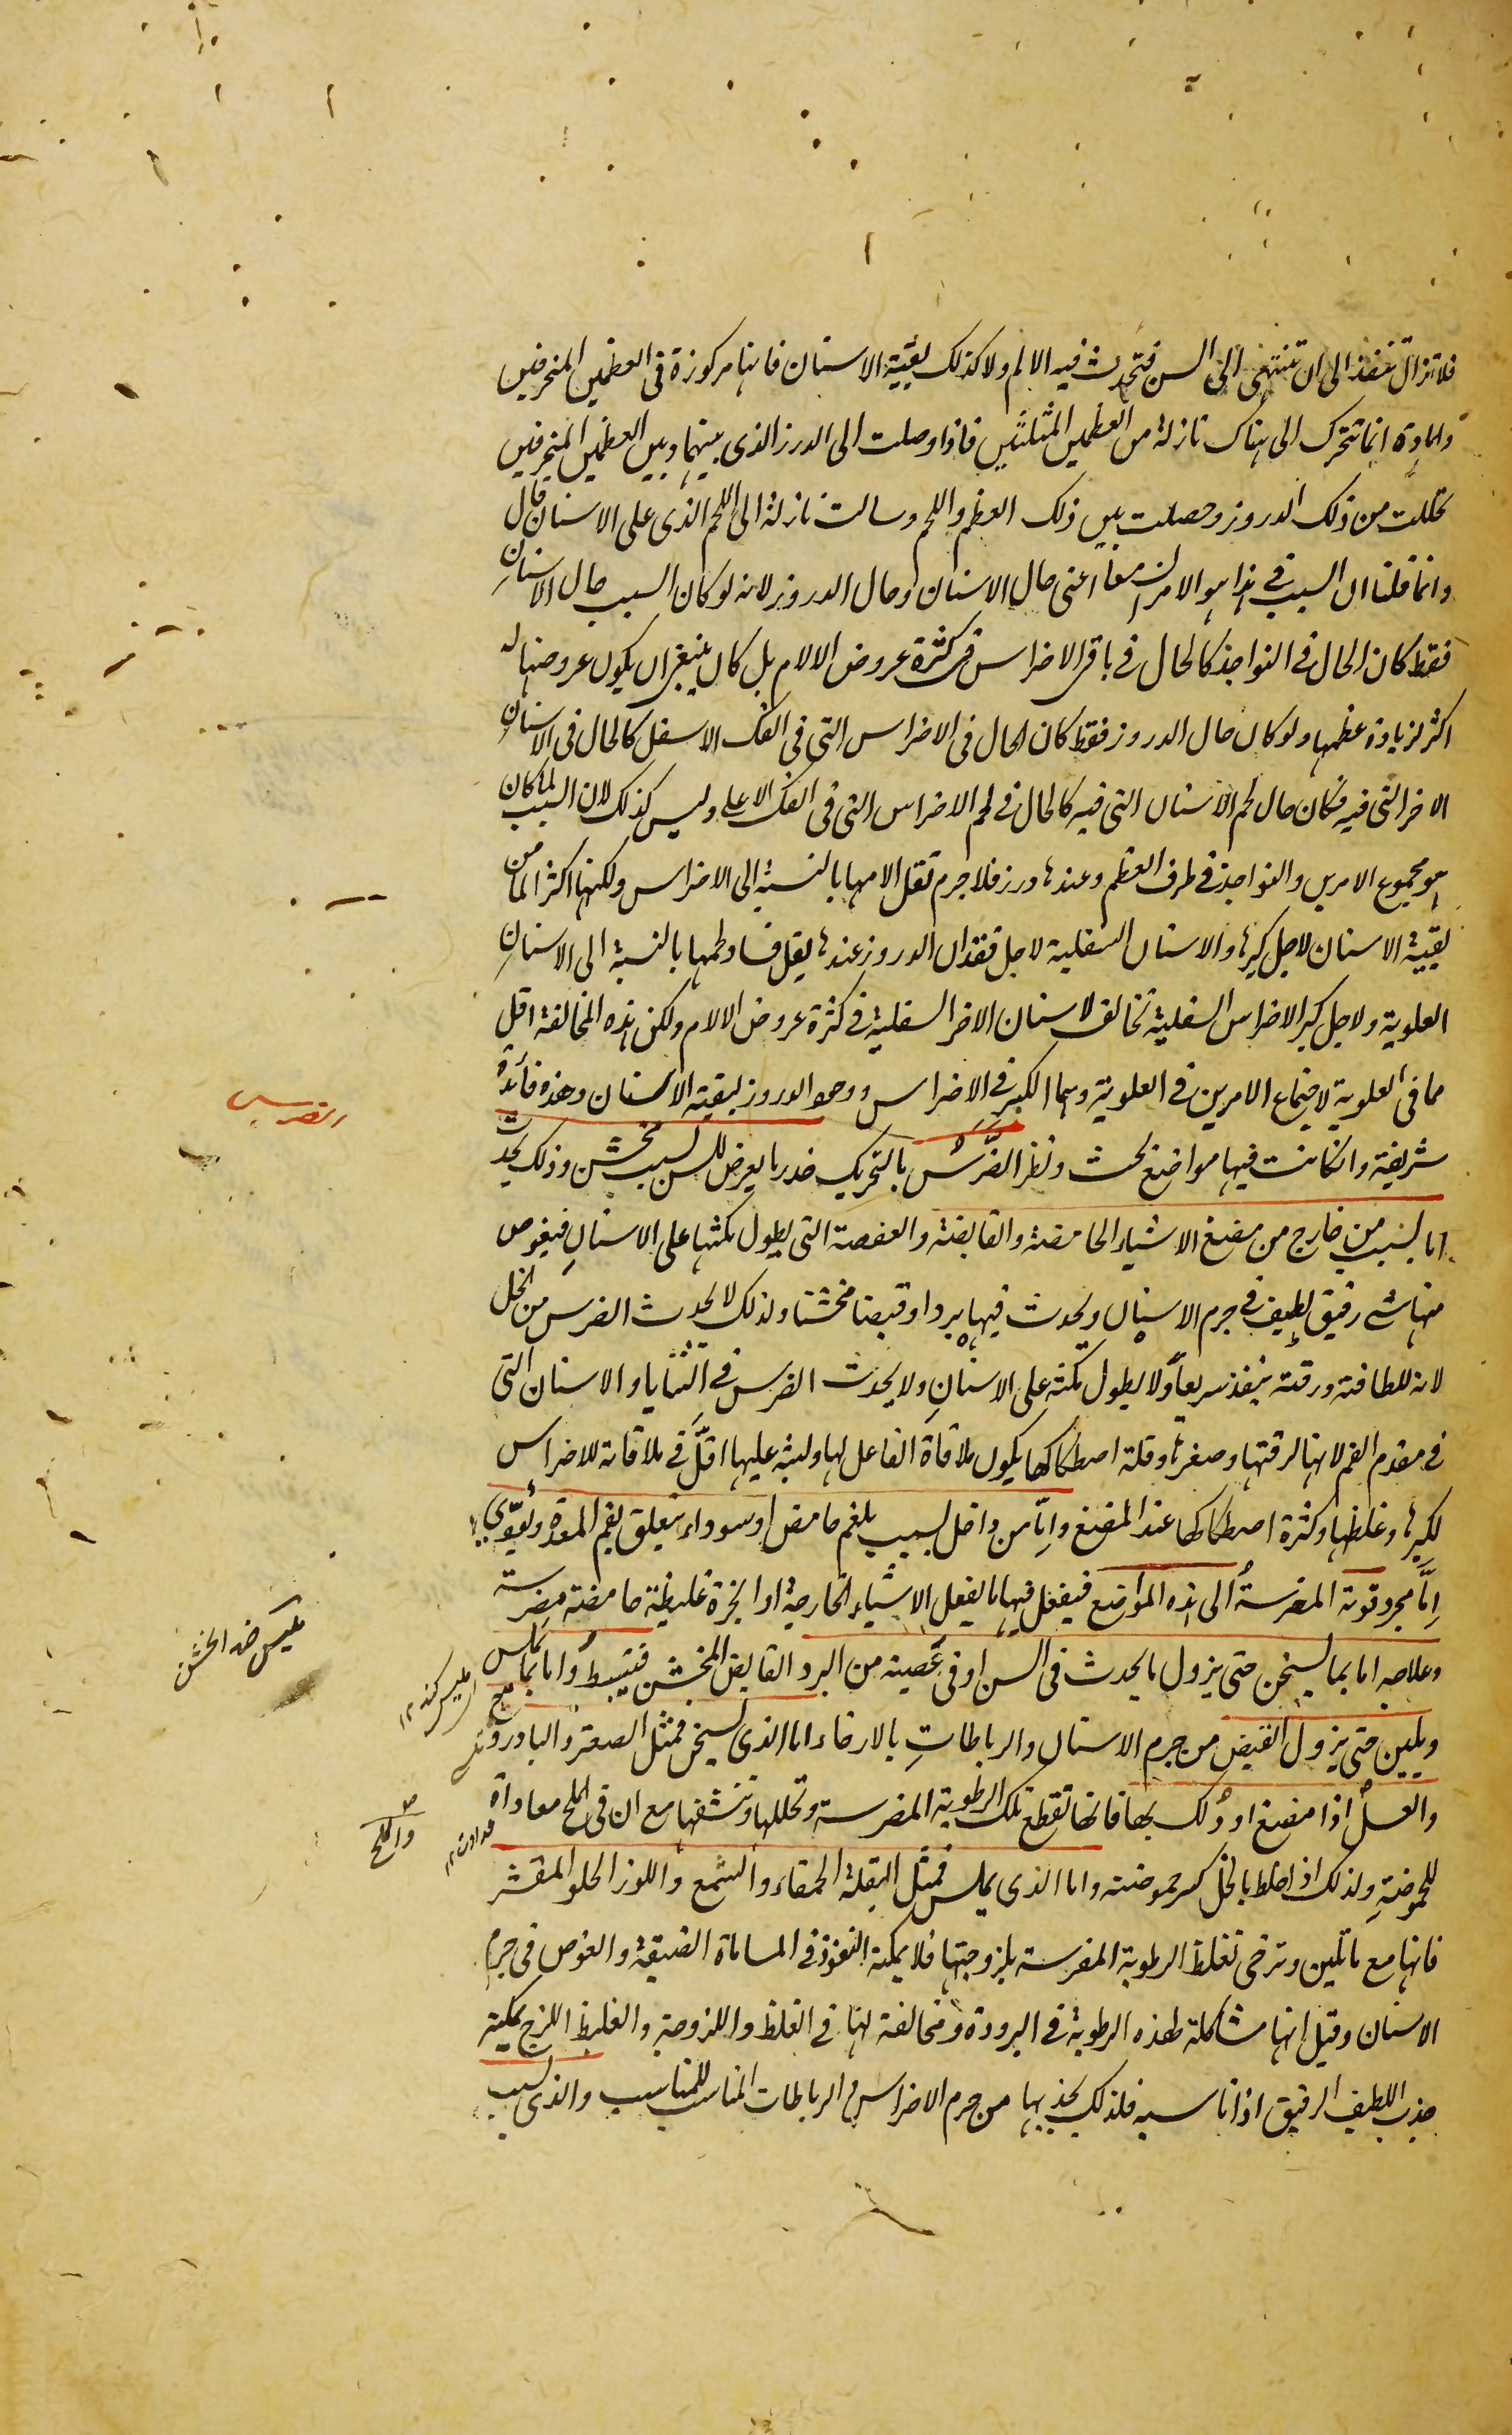 فلا تزال تنفذ الى ان تنتهى الى السن فتحدث فيه الالم ولا كذلك بقية الاسنان فانها مركوزة فى العظمين المنحرفين
والمادة انما تتحرك الى هناك نازلة من العظمين المثلثين فاذا وصلت الى الدرز الذى بينهما وبين العظمين المنحرفين
تحللت من ذلك الدروز وحصلت بين ذلك العظم واللحم وسالت نازلة الى اللحم الذى على الاسنان قال
وانما قلنا ان السبب فى هذا هو الامران معا اعنى حال الاسنان وحال الدروز لانه لو كان السبب حال الاسنان
فقط كان الحال فى النواجذ كالحال فى باقى الاضراس فى كثرة عروض الالام بل كان ينبغى ان يكون عروضها له
اكثر لزيادة عظمها ولو كان حال الدروز فقط كان الحال فى الاضراس التى فى الفك الاسفل كالحال فى الاسنان
الاخر التى فيه فكان حال لحم الاسنان التى فيه كالحال فى لحم الاضراس التى فى الفك الاعلى وليس كذلك لان السبب لما كان
هو مجموع الامرين والنواجذ فى طرف العظم وعندها درز فلا جرم تقل الامها بالنسبة الى الاضراس ولكنها اكثر الما من
بقية الاسنان لاجل كبرها والاسنان السفلية لاجل فقدان الدروز عندها يقل فساد لحمها بالنسبة الى الاسنان
العلوية ولاجل كبر الاضراس السفلية تخالف الاسنان الاخر السفلية فى كثرة عروض الالام ولكن هذه المخالفة اقل
مما فى العلوية لاجتماع الامرين فى العلوية وهما الكبر فى الاضراس ووجود الدروز لبقية الاسنان وهذه فائدة
شريفة وان كانت فيها مواضع بحث ونظر الضرس بالتحريك خدر ما يعرض للسن بسبب مخشن وذلك يحدث
اما بسبب من خارج من مضغ الاشياء الحامضة والقابضة والعفصة التى يطول مكثها على الاسنان فيغوص
منها شئ رقيق لطيف فى جرم الاسنان ويحدث فيها بردا وقبضا مخشنا ولذلك لا يحدث الضرس من الخل
لانه للطافته ورقته ينفذ سريعا ولا يطول مكثه على الاسنان ولا يحدث الضرس فى الثنايا والاسنان التى
فى مقدم الفم لانها لرقتها وصغرها وقلة اصطكاكها يكون ملاقاة الفاعل لها ولبثه عليها اقل فى ملاقاته للاضراس
لكبرها وغلظها وكثرة اصطكاكها عند المضغ واما من داخل بسبب بلغم حامض او سوداء يتعلق بفم المعدة ويؤدى
اما مجرد قوته المضرسة الى هذه المواضع فيفعل فيها ما يفعل الاشياء الخارجية او ابخرة غليظة حامضة مضرسة
وعلاجه اما بما يسخن حتى يزول ما يحدث فى السن او فى عصبه من البرد القابض المخشن فينبسط واما بما يملس
ويلين حتى يزول القبض من جرم الاسنان والرباطات بالارخاء اما الذى يسخن فمثل الصعتر والبادروج
والعسل اذا مضغ او دلك بها فانها تقطع تلك الرطوبة المضرسة وتحللها وتنشفها مع ان فى الملح معاداة
للحموضة ولذلك اذا خلط بالخل كسر حموضته واما الذى يملس فمثل البقلة الحمقاء والشمع واللوز الحلو المقشر
فانها مع ما تلين وترخى تغلظ الرطوبة المضرسة بلزوجتها فلا يمكنه النفوذ فى المسامات الضيقة والغوص فى جرم
الاسنان وقيل انها مشاكلة لهذه الرطوبة فى البرودة ومخالفة لها فى الغلظ واللزوجة والغليظ اللزج يمكنه
جذب اللطيف الرقيق اذا ناسبه فلذلك يجذبها من جرم الاضراس والرباطات المناسب للمناسب والذى بسبب
الضرس
تمليس ضد الخشن
والملح